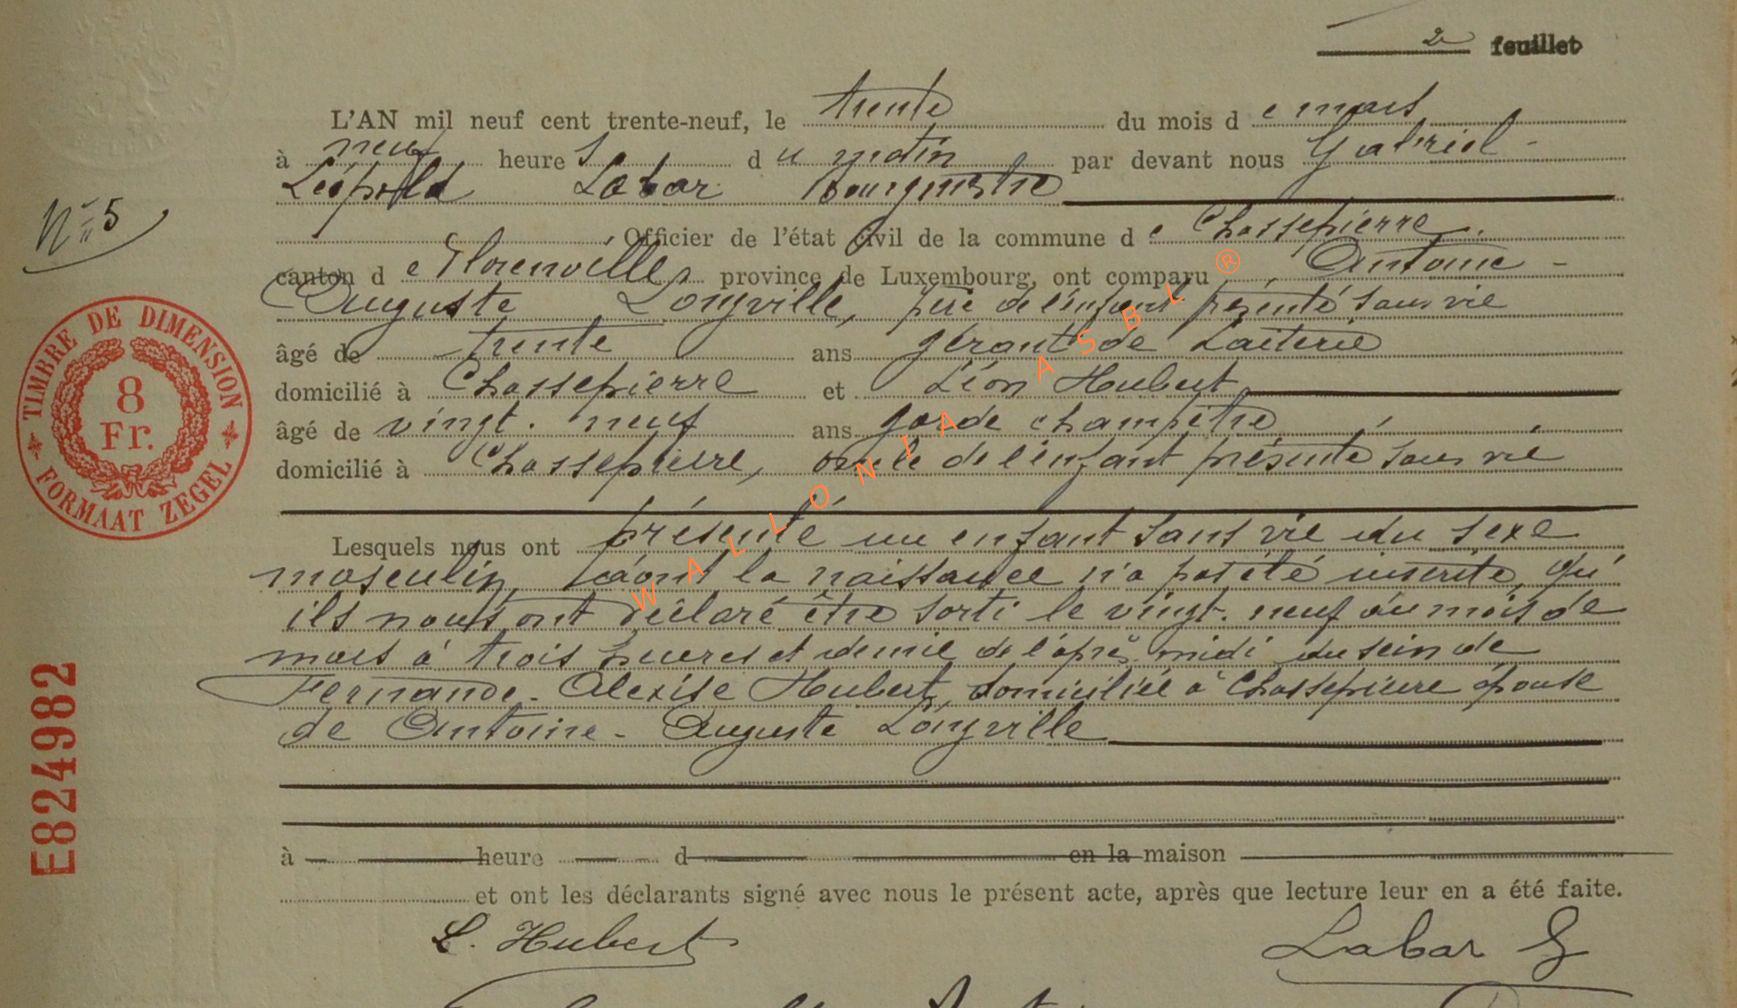 2 feuillet
L'AN mil neuf cent trente-neuf, le trente du mois de mars
à neuf heures du matin par devant nous Gabriel-
Léopold Labar Bourgmestre
Officier de l'état civil de la commune de Chassepierre.
canton de Florenville, province de Luxembourg, ont comparu Antoine-
Auguste Longville, père de l'enfant présenté sans vie
âgé de trente ans gérant de Laiterie
domicilié à Chassepierre et Léon Hubert
âgé de vingt-neuf ans garde champêtre
domicilié à Chassepierre, oncle de l'enfant présenté sans vie
Lesquels nous ont présenté un enfant sans vie du sexe
masculin, dont la naissance n'a pas été inscrite, qu'
ils nous ont déclaré être sorti le vingt-neuf du mois de
mars à trois heures et demie de l'après-midi du sein de
Fernande-Alexise Hubert, domiciliée à Chassepierre épouse
de Antoine-Auguste Longville
à heure d en la maison
et ont les déclarants signé avec nous le présent acte, après que lecture leur en a été faite.
L. Hubert Labar G
N° 5
TIMBRE DE DIMENSION
8
Fr.
FORMAAT ZEGEL
E824982
WALLONIA ASBL ®